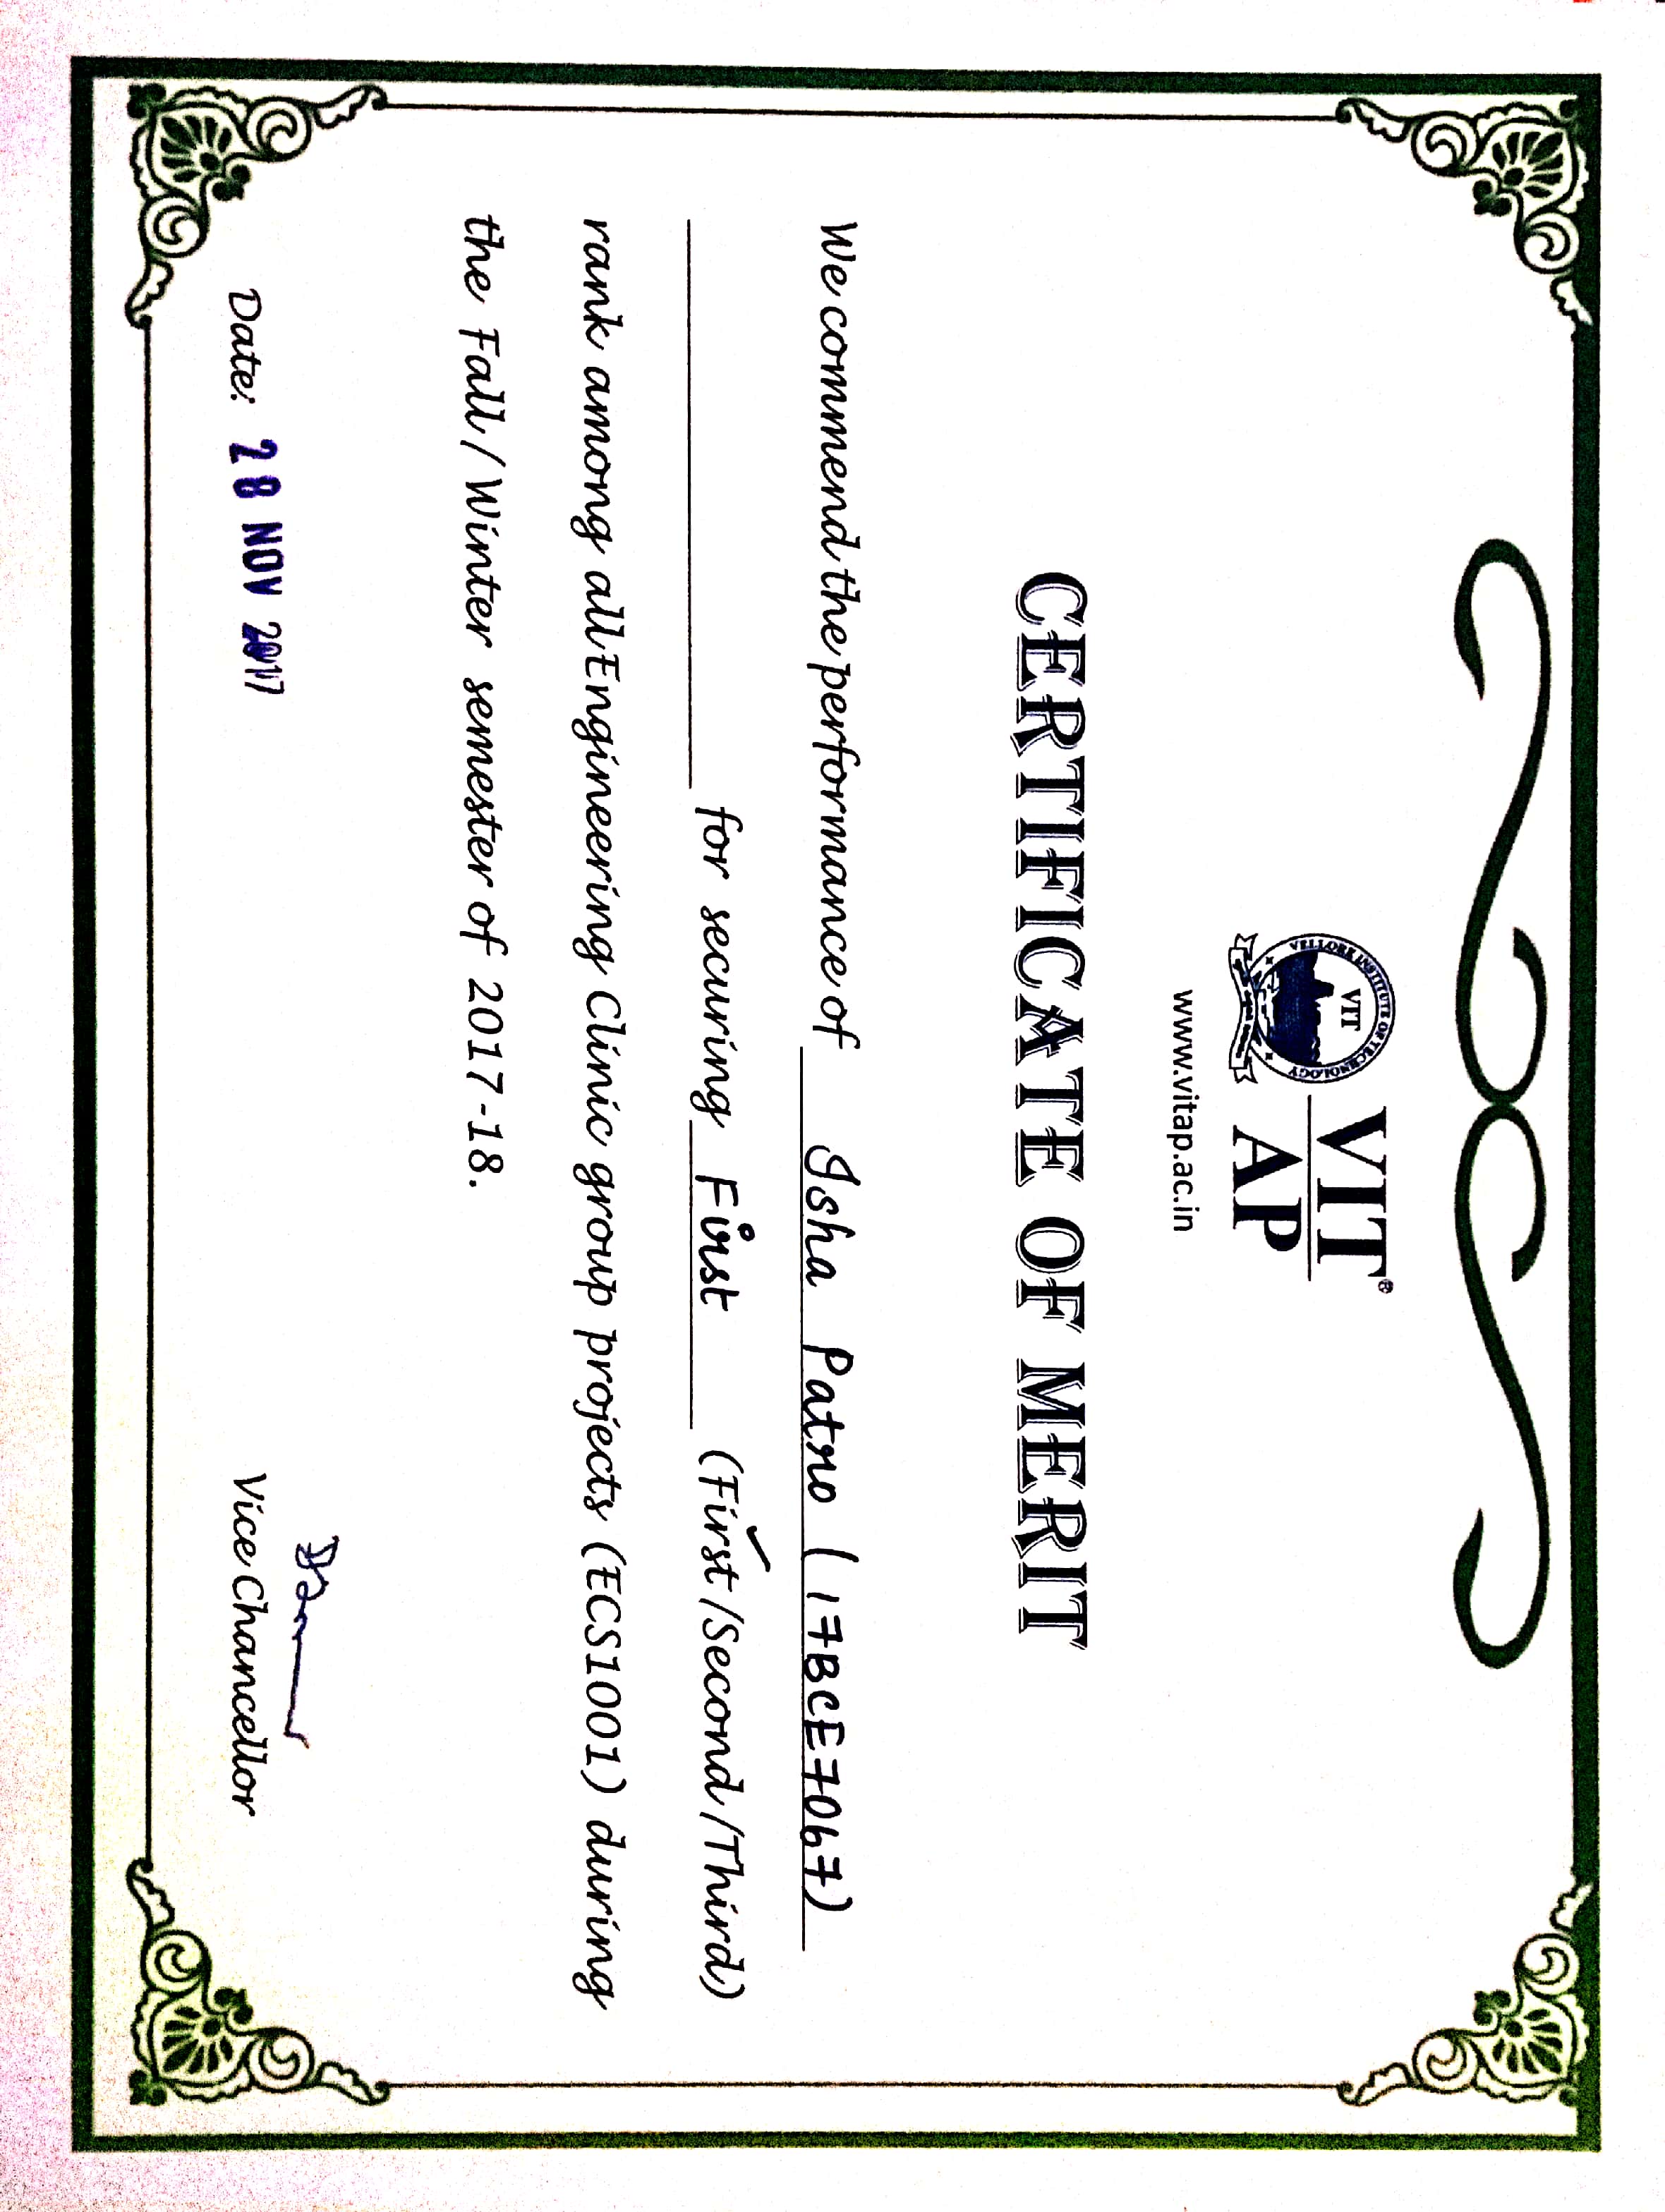 VELLORE INSTITUTE OF TECHNOLOGY
VIT
VIT®
AP
www.vitap.ac.in
CERTIFICATE OF MERIT
We commend the performance of Isha Patro (17BCE7067)
for securing First (First/Second/Third)
rank among all Engineering Clinic group projects (ECS1001) during
the Fall/Winter semester of 2017-18.
Date: 28 NOV 2017
Vice Chancellor